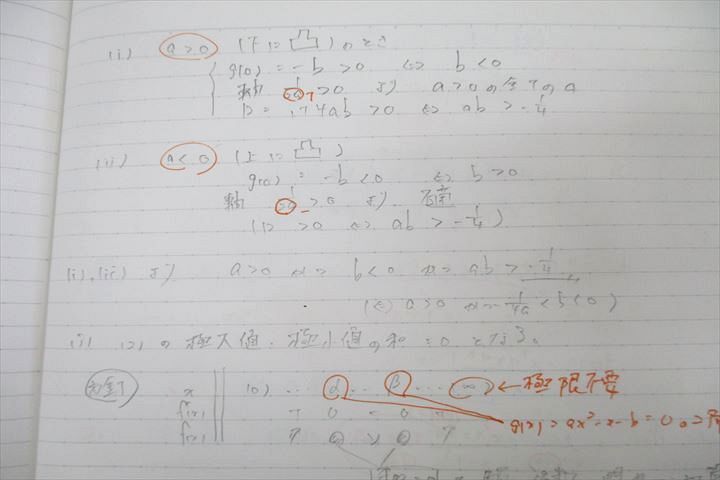 (i) a>0 (下に凸)のとき
g(0) = -b >0 ⇔ b<0
軸 1/2a >0 より a>0の全てのa
D = 1+4ab >0 ⇔ ab > -1/4
(ii) a<0 (上に凸)
g(0) = -b <0 ⇔ b>0
軸 1/2a >0 より 不適
(D >0 ⇔ ab > -1/4)
(i),(ii) より a>0 かつ b<0 かつ ab > -1/4
(⇔ a>0 かつ -1/4a < b < 0)
の極大値、極小値の和 =0 となる。
x (0) … α … β … (∞) ←極限不要
f'(x) + 0 - 0 +
f(x) ↗ ↘ ↗
g(x) = ax²-x-b=0の2